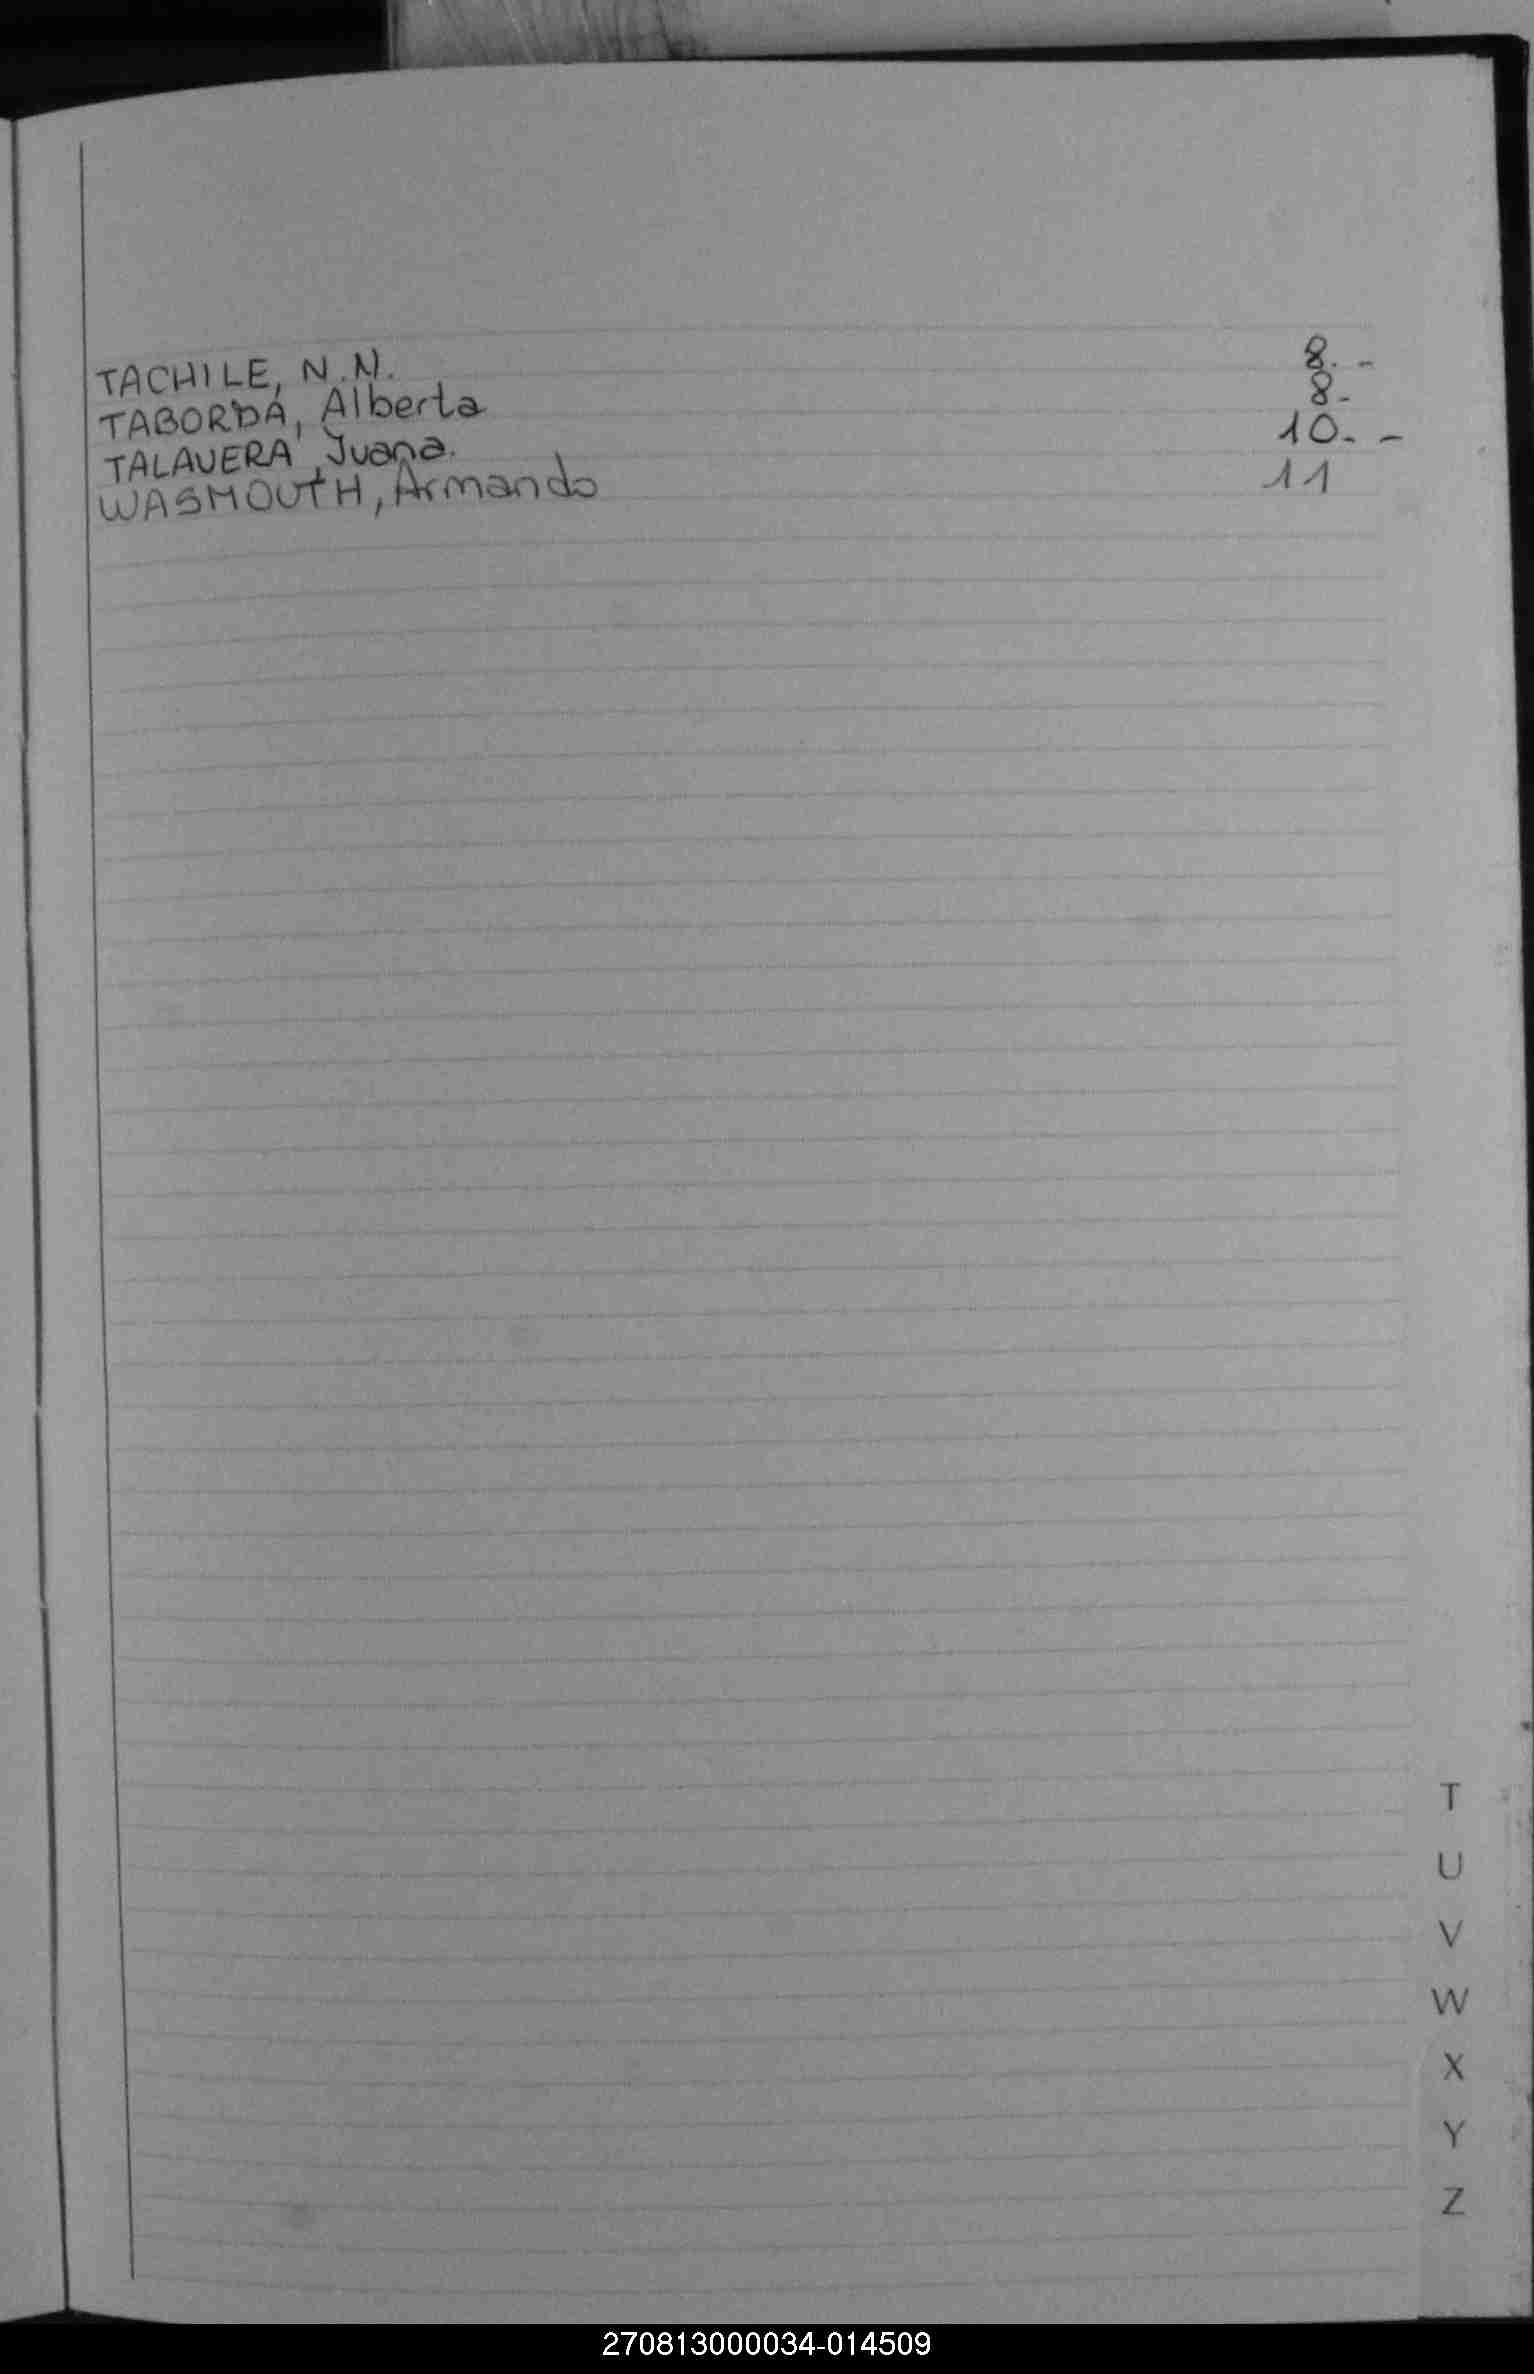 TACHILE, N.N. 8. -
TABORDA, Alberta 8.-
TALAVERA, Juana. 10. -
WASMOUTH, Armando 11
T
U
V
W
X
Y
Z
270813000034-014509